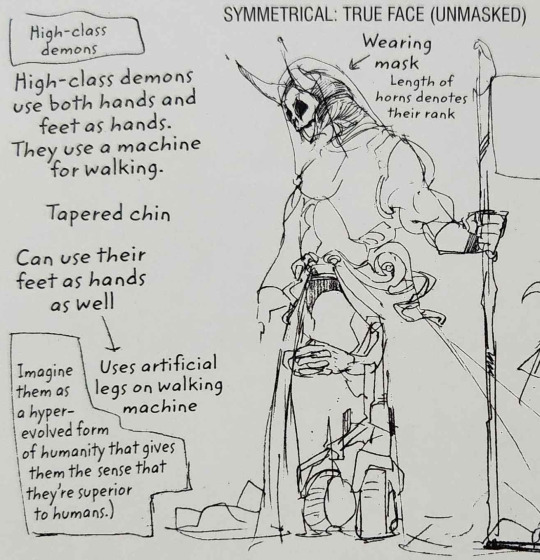 SYMMETRICAL: TRUE FACE (UNMASKED)
High-class
demons
High-class demons
use both hands and
feet as hands.
They use a machine
for walking.
Wearing
mask
Length of
horns denotes
their rank
Tapered chin
Can use their
feet as hands
as well
Uses artificial
legs on walking
machine
Imagine
them as
a hyper-
evolved form
of humanity that gives
them the sense that
they're superior
to humans.)